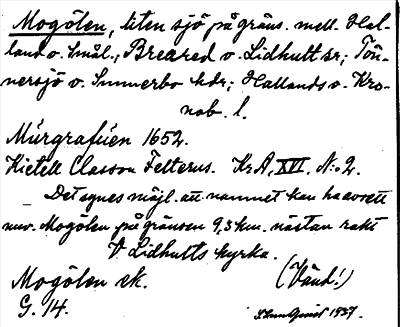 Mogölen, liten sjö på gräns. mell. Hal-
land o. Smål., Breared o. Lidhult sr; Tön-
nersjö o. Sunnerbo hdr; Hallands o. Kro-
nob. l.
Murgrafuen 1652.
Kietell Classon Felterus. Kr.A, XVI, N:o 2.
Det synes möjl. att namnet kan ha avsett
nuv. Mogölen på gränsen 9,3 km. nästan rakt
V Lidhults kyrka.
Mogölen ek. (Vänd!)
G. 14. 1937.